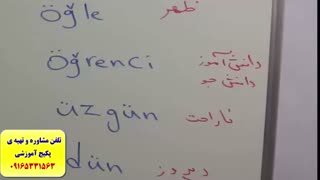 öğle ظهر
دانش آموز
öğrenci
دانش جو
üzgün ناراحت
dün دیروز
تلفن مشاوره و تهیه ی
پکیج آموزشی
۰۹۱۶۵۳۳۱۵۶۳